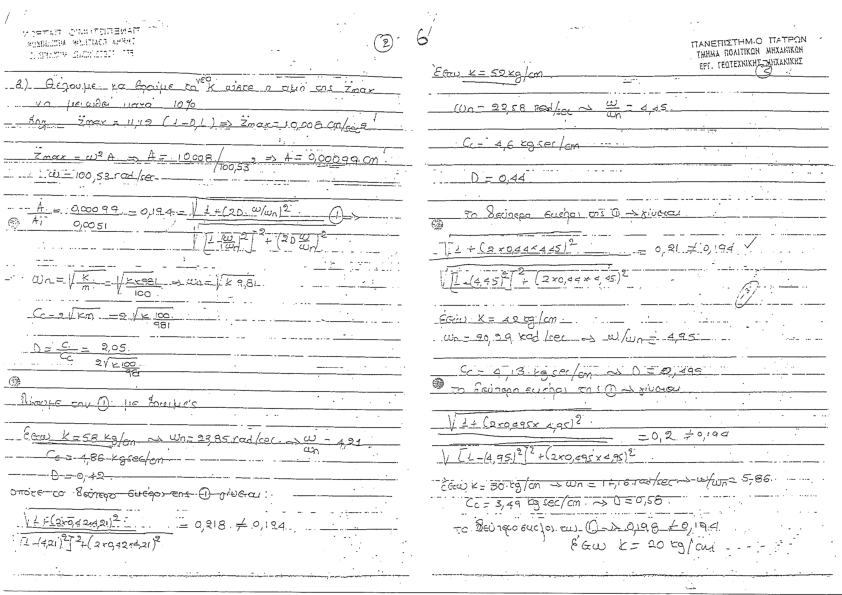 2
β) Θέλουμε να βρούμε το νεο K ώστε η τιμή της Z̈max
να μειωθεί κατά 10%
δηλ Z̈max = 11,12 (1-0,1) ⇒ Z̈max = 10,008 cm/sec²
Z̈max = ω² A ⇒ A = 10,008/100,53² ⇒ A = 0,00099 cm
ω = 100,53 rad/sec
A/Ai = 0,00099/0,0051 = 0,194 = √(1+(2D ω/ωn)²) / √([1-(ω/ωn)²]²+(2D ω/ωn)²) ① ⇒
ωn = √(k/m) = √(k×981/100) ⇒ ωn = √(k 9,81)
Cc = 2√(km) = 2√(k 100/981)
D = C/Cc = 2,05 / 2√(k100/981)
με δοκιμές
Έστω K = 58 kg/cm → ωn = 23,85 rad/sec → ω/ωn = 4,21
Cc = 4,86 kgsec/cm
D = 0,42
οπότε το δεύτερο σκέλος της ① γίνεται:
√(1+(2×0,42×4,21)²) / √([1-(4,21)²]²+(2×0,42×4,21)²) = 0,218 ≠ 0,194
6
ΠΑΝΕΠΙΣΤΗΜΙΟ ΠΑΤΡΩΝ
ΤΜΗΜΑ ΠΟΛΙΤΙΚΩΝ ΜΗΧΑΝΙΚΩΝ
ΕΡΓ. ΓΕΩΤΕΧΝΙΚΗΣ ΜΗΧΑΝΙΚΗΣ
Έστω K = 52 kg/cm
ωn = 22,58 rad/sec → ω/ωn = 4,45
Cc = 4,6 kgsec/cm
D = 0,44
το δεύτερο σκέλος της ① → γίνεται
√(1+(2×0,44×4,45)²) / √([1-(4,45)²]²+(2×0,44×4,45)²) = 0,21 ≠ 0,194 ✓
Έστω K = 42 kg/cm
ωn = 20,29 rad/sec ⇒ ω/ωn = 4,95
Cc = 4,13 kgsec/cm → D = 0,495
το δεύτερο σκέλος της ① → γίνεται
√(1+(2×0,495×4,95)²) / √([1-(4,95)²]²+(2×0,495×4,95)²) = 0,2 ≠ 0,194
Έστω K = 30 kg/cm → ωn = 17,16 rad/sec → ω/ωn = 5,86
Cc = 3,49 kg sec/cm → D = 0,58
το δεύτερο σκέλος της ① → 0,198 ≠ 0,194
Έστω K = 20 kg/cm